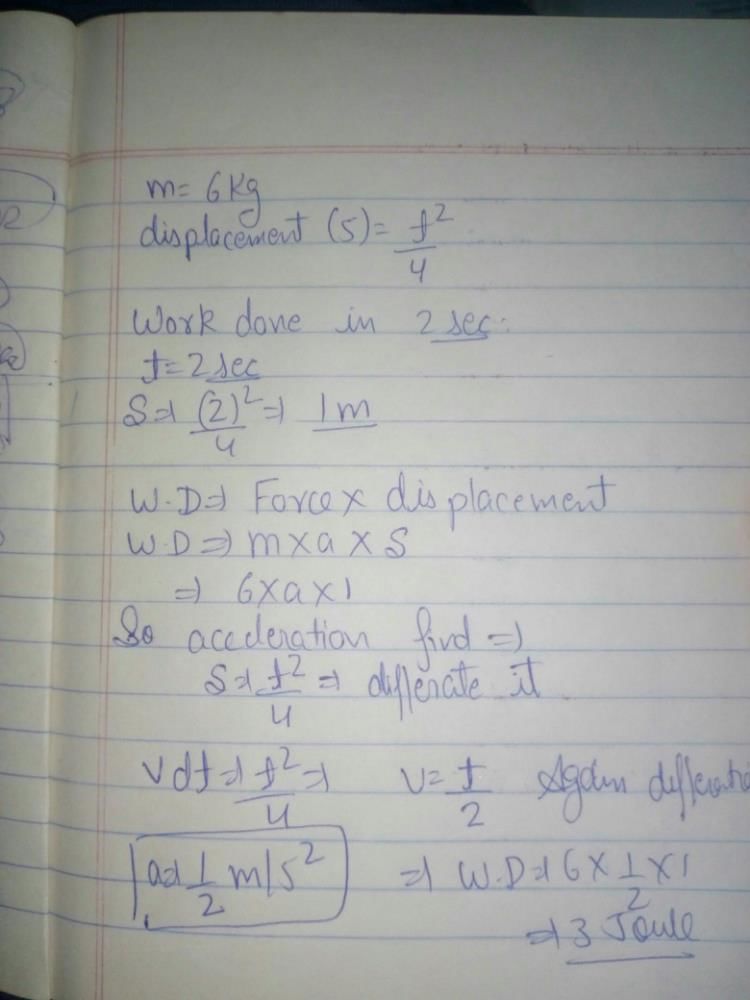 m= 6 Kg
displacement (S)= t²/4
Work done in 2 sec.
t=2 sec
S⇒ (2)²/4 ⇒ 1m
W.D⇒ Force x displacement
W.D ⇒ m x a x S
⇒ 6 x a x 1
So acceleration find ⇒
S⇒ t²/4 ⇒ differate it
V dt ⇒ t²/4 ⇒ V= t/2 Again
a⇒ 1/2 m/s² ⇒ W.D ⇒ 6 x 1/2 x 1
⇒ 3 Joule